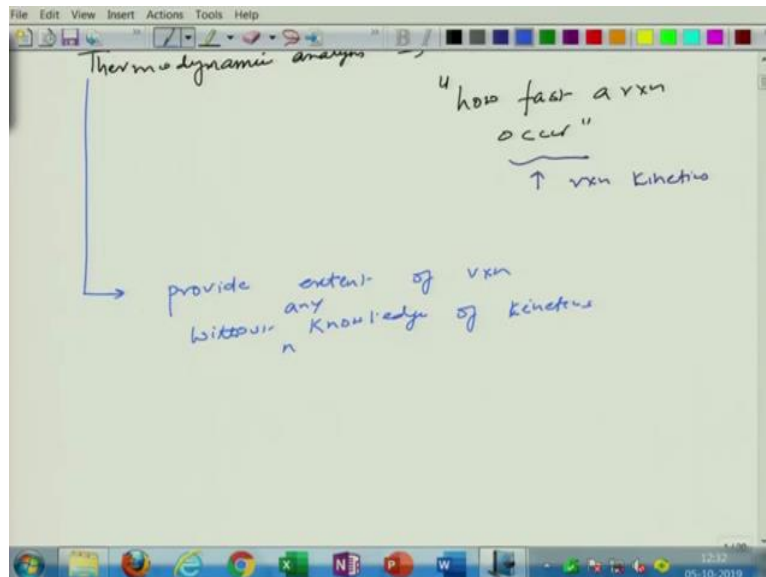 File Edit View Insert Actions Tools Help
Thermodynamic analysis →
"how fast a rxn
occur"
↑ rxn kinetics
provide extent of rxn
any
without knowledge of kinetics
12:32
05-10-2019